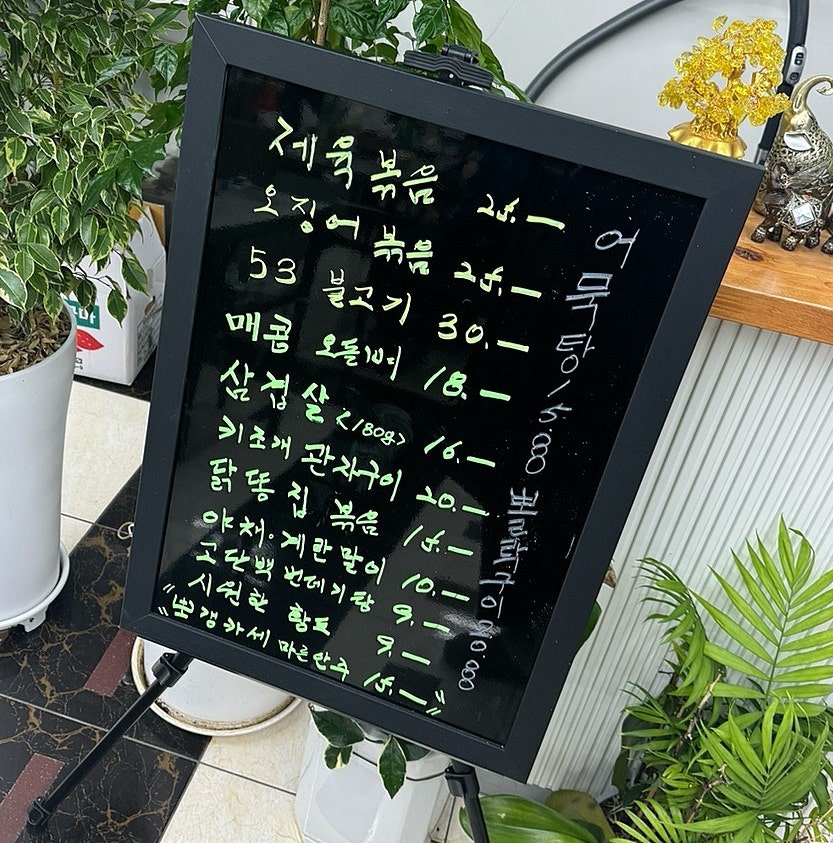 제육 볶음 25.—
오징어 볶음 25.—
53 불고기 30.—
매콤 오돌뼈 18.—
삼겹살 <180g> 16.—
키조개 관자구이 20.—
닭똥집 볶음 15.—
야채.계란말이 10.—
고단백 번데기탕 9.—
시원한 황도 9.—
"뽀갱카세 마른안주 15.—"
어묵탕 15000